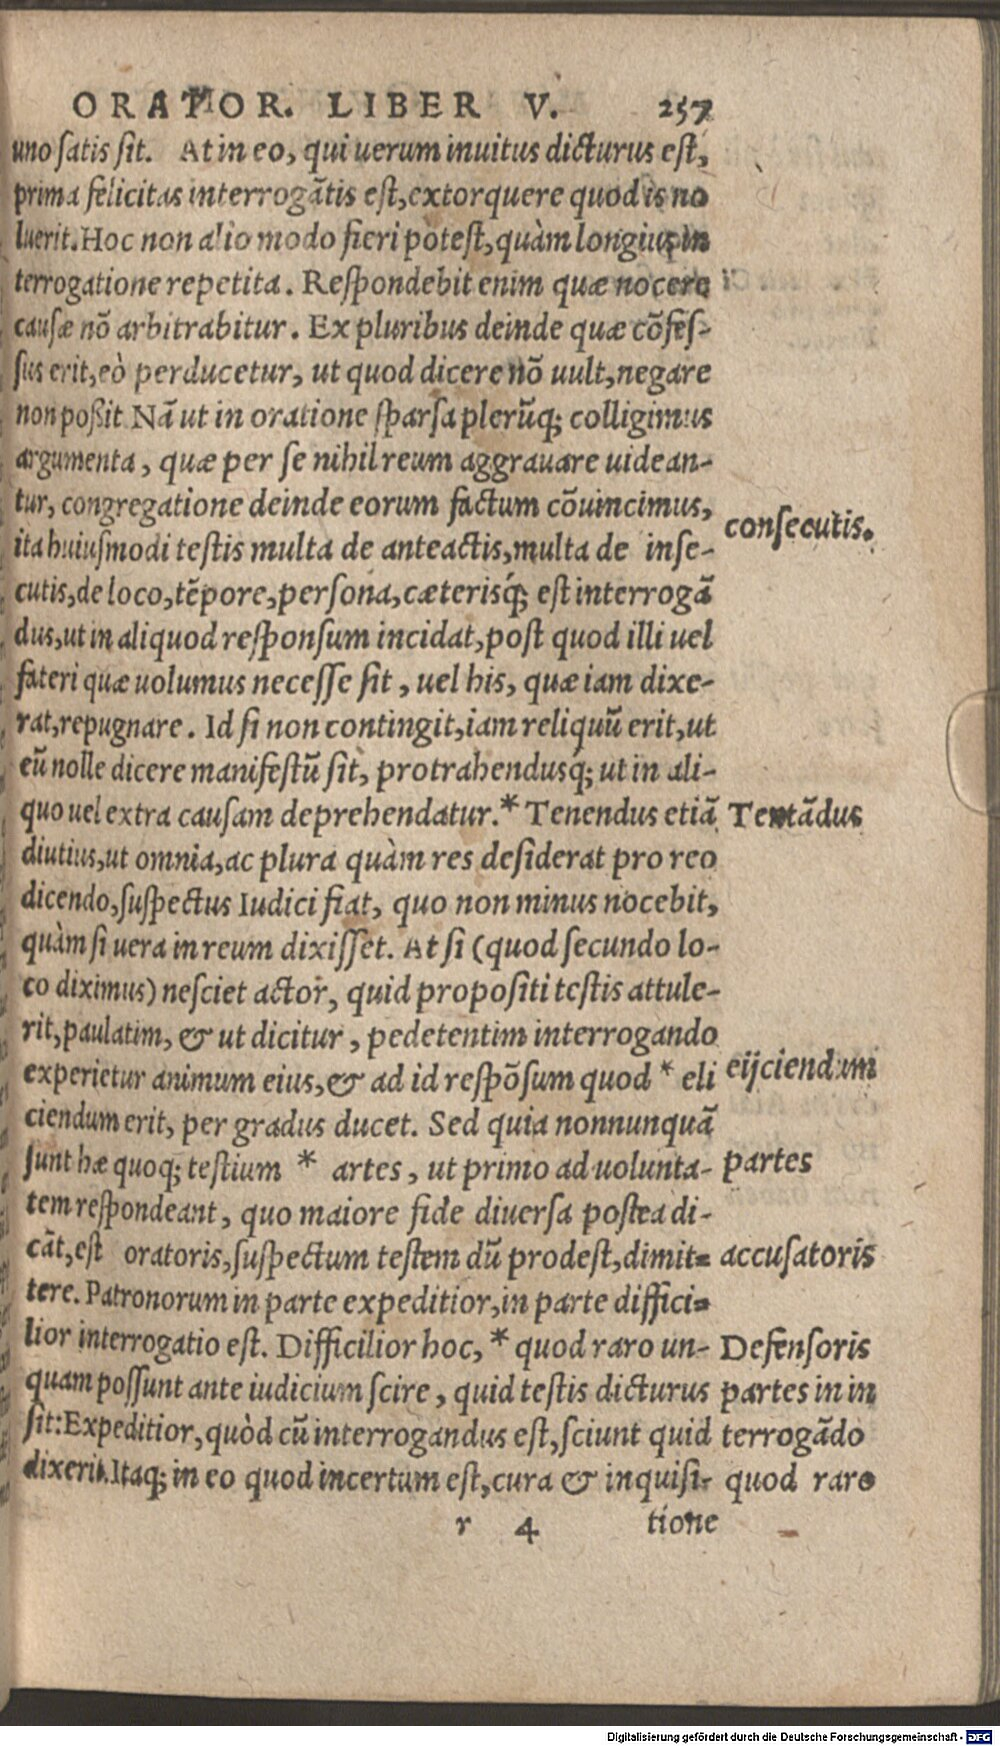 ORATOR. LIBER V. 257
uno satis sit. At in eo, qui uerum inuitus dicturus est,
prima felicitas interrogãtis est, extorquere quod is no
luerit. Hoc non alio modo fieri potest, quàm longius in
terrogatione repetita. Respondebit enim quæ nocere
causæ nõ arbitrabitur. Ex pluribus deinde quæ cõfes-
sus erit, eò perducetur, ut quod dicere nõ uult, negare
non poßit Nã ut in oratione sparsa plerũq; colligimus
argumenta, quæ per se nihil reum aggrauare uidean-
tur, congregatione deinde eorum factum cõuincimus,
ita huiusmodi testis multa de anteactis, multa de inse-
consecutis.
cutis, de loco, tẽpore, persona, cæterisq́; est interrogã
dus, ut in aliquod responsum incidat, post quod illi uel
fateri quæ uolumus necesse sit, uel his, quæ iam dixe-
rat, repugnare. Id si non contingit, iam reliquũ erit, ut
eũ nolle dicere manifestũ sit, protrahendusq; ut in ali-
quo uel extra causam deprehendatur.* Tenendus etiã
Tentãdus
diutius, ut omnia, ac plura quàm res desiderat pro reo
dicendo, suspectus Iudici fiat, quo non minus nocebit,
quàm si uera in reum dixisset. At si (quod secundo lo-
co diximus) nesciet actor, quid propositi testis attule-
rit, paulatim, & ut dicitur, pedetentim interrogando
experietur animum eius, & ad id respõsum quod * eli
eijciendum
ciendum erit, per gradus ducet. Sed quia nonnunquã
sunt hæ quoq; testium * artes, ut primo ad uolunta-
partes
tem respondeant, quo maiore fide diuersa postea di-
cãt, est oratoris, suspectum testem dũ prodest, dimit-
accusatoris
tere. Patronorum in parte expeditior, in parte diffici-
lior interrogatio est. Difficilior hoc, * quod raro un-
Defensoris
quam possunt ante iudicium scire, quid testis dicturus
partes in in
sit: Expeditior, quòd cũ interrogandus est, sciunt quid
terrogãdo
dixerit. Itaq; in eo quod incertum est, cura & inquisi-
quod raro
r 4 tione
Digitalisierung gefördert durch die Deutsche Forschungsgemeinschaft - DFG